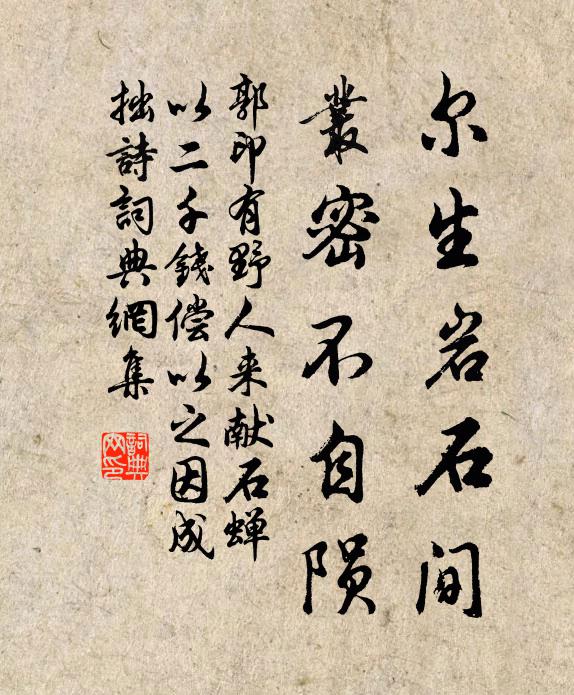 尔生岩石间
叢密不自陨
郭印有野人来献石蝉
以二千錢偿以之因成
拙詩詞典網集
詞典
网印